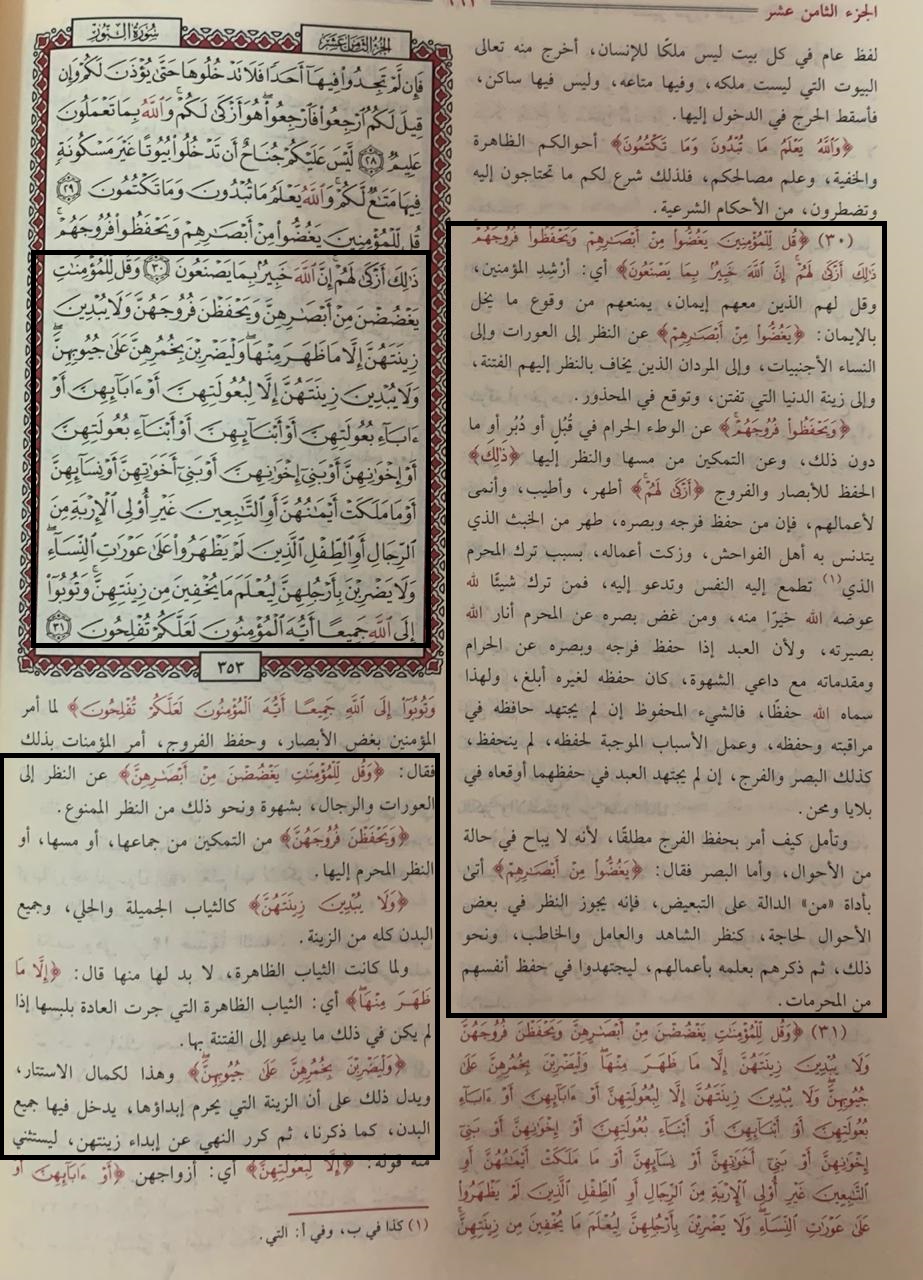 الجزء الثامن عشر
لفظ عام في كل بيت ليس ملكًا للإنسان، أخرج منه تعالى
البيوت التي ليست ملكه، وفيها متاعه، وليس فيها ساكن،
فأسقط الحرج في الدخول إليها.
﴿وَاللَّهُ يَعْلَمُ مَا تُبْدُونَ وَمَا تَكْتُمُونَ﴾ أحوالكم الظاهرة
والخفية، وعلم مصالحكم، فلذلك شرع لكم ما تحتاجون إليه
وتضطرون، من الأحكام الشرعية.
(٣٠) ﴿قُل لِّلْمُؤْمِنِينَ يَغُضُّوا مِنْ أَبْصَارِهِمْ وَيَحْفَظُوا فُرُوجَهُمْ
ذَٰلِكَ أَزْكَىٰ لَهُمْ إِنَّ اللَّهَ خَبِيرٌ بِمَا يَصْنَعُونَ﴾ أي: أرْشِدِ المؤمنين،
وقل لهم الذين معهم إيمان، يمنعهم من وقوع ما يخل
بالإيمان: ﴿يَغُضُّوا مِنْ أَبْصَارِهِمْ﴾ عن النظر إلى العورات وإلى
النساء الأجنبيات، وإلى المردان الذين يخاف بالنظر إليهم الفتنة،
وإلى زينة الدنيا التي تفتن، وتوقع في المحذور.
﴿وَيَحْفَظُوا فُرُوجَهُمْ﴾ عن الوطء الحرام في قُبُلٍ أو دُبُر أو ما
دون ذلك، وعن التمكين من مسها والنظر إليها ﴿ذَٰلِكَ﴾
الحفظ للأبصار والفروج ﴿أَزْكَىٰ لَهُمْ﴾ أطهر، وأطيب، وأنمى
لأعمالهم، فإن من حفظ فرجه وبصره، طهر من الخبث الذي
يتدنس به أهل الفواحش، وزكت أعماله، بسبب ترك المحرم
الذي(١) تطمع إليه النفس وتدعو إليه، فمن ترك شيئًا لله
عوضه الله خيرًا منه، ومن غض بصره عن المحرم أنار الله
بصيرته، ولأن العبد إذا حفظ فرجه وبصره عن الحرام
ومقدماته مع داعي الشهوة، كان حفظه لغيره أبلغ، ولهذا
سماه الله حفظًا، فالشيء المحفوظ إن لم يجتهد حافظه في
مراقبته وحفظه، وعمل الأسباب الموجبة لحفظه، لم ينحفظ،
كذلك البصر والفرج، إن لم يجتهد العبد في حفظهما أوقعاه في
بلايا ومحن.
وتأمل كيف أمر بحفظ الفرج مطلقًا، لأنه لا يباح في حالة
من الأحوال، وأما البصر فقال: ﴿يَغُضُّوا مِنْ أَبْصَارِهِمْ﴾ أتى
بأداة «من» الدالة على التبعيض، فإنه يجوز النظر في بعض
الأحوال لحاجة، كنظر الشاهد والعامل والخاطب، ونحو
ذلك، ثم ذكرهم بعلمه بأعمالهم، ليجتهدوا في حفظ أنفسهم
من المحرمات.
(٣١) ﴿وَقُل لِّلْمُؤْمِنَاتِ يَغْضُضْنَ مِنْ أَبْصَارِهِنَّ وَيَحْفَظْنَ فُرُوجَهُنَّ
وَلَا يُبْدِينَ زِينَتَهُنَّ إِلَّا مَا ظَهَرَ مِنْهَا وَلْيَضْرِبْنَ بِخُمُرِهِنَّ عَلَىٰ
جُيُوبِهِنَّ وَلَا يُبْدِينَ زِينَتَهُنَّ إِلَّا لِبُعُولَتِهِنَّ أَوْ ءَابَائِهِنَّ أَوْ ءَابَاءِ
بُعُولَتِهِنَّ أَوْ أَبْنَائِهِنَّ أَوْ أَبْنَاءِ بُعُولَتِهِنَّ أَوْ إِخْوَانِهِنَّ أَوْ بَنِي
إِخْوَانِهِنَّ أَوْ بَنِي أَخَوَاتِهِنَّ أَوْ نِسَائِهِنَّ أَوْ مَا مَلَكَتْ أَيْمَانُهُنَّ أَوِ
التَّابِعِينَ غَيْرِ أُولِي الْإِرْبَةِ مِنَ الرِّجَالِ أَوِ الطِّفْلِ الَّذِينَ لَمْ يَظْهَرُوا
عَلَىٰ عَوْرَاتِ النِّسَاءِ وَلَا يَضْرِبْنَ بِأَرْجُلِهِنَّ لِيُعْلَمَ مَا يُخْفِينَ مِن زِينَتِهِنَّ
الجزء الثامن عشر
سورة النور
فَإِن لَّمْ تَجِدُوا فِيهَا أَحَدًا فَلَا تَدْخُلُوهَا حَتَّىٰ يُؤْذَنَ لَكُمْ وَإِن
قِيلَ لَكُمُ ارْجِعُوا فَارْجِعُوا هُوَ أَزْكَىٰ لَكُمْ وَاللَّهُ بِمَا تَعْمَلُونَ
عَلِيمٌ ٢٨ لَّيْسَ عَلَيْكُمْ جُنَاحٌ أَن تَدْخُلُوا بُيُوتًا غَيْرَ مَسْكُونَةٍ
فِيهَا مَتَاعٌ لَّكُمْ وَاللَّهُ يَعْلَمُ مَا تُبْدُونَ وَمَا تَكْتُمُونَ ٢٩
قُل لِّلْمُؤْمِنِينَ يَغُضُّوا مِنْ أَبْصَارِهِمْ وَيَحْفَظُوا فُرُوجَهُمْ
ذَٰلِكَ أَزْكَىٰ لَهُمْ إِنَّ اللَّهَ خَبِيرٌ بِمَا يَصْنَعُونَ ٣٠ وَقُل لِّلْمُؤْمِنَاتِ
يَغْضُضْنَ مِنْ أَبْصَارِهِنَّ وَيَحْفَظْنَ فُرُوجَهُنَّ وَلَا يُبْدِينَ
زِينَتَهُنَّ إِلَّا مَا ظَهَرَ مِنْهَا وَلْيَضْرِبْنَ بِخُمُرِهِنَّ عَلَىٰ جُيُوبِهِنَّ
وَلَا يُبْدِينَ زِينَتَهُنَّ إِلَّا لِبُعُولَتِهِنَّ أَوْ ءَابَائِهِنَّ أَوْ
ءَابَاءِ بُعُولَتِهِنَّ أَوْ أَبْنَائِهِنَّ أَوْ أَبْنَاءِ بُعُولَتِهِنَّ
أَوْ إِخْوَانِهِنَّ أَوْ بَنِي إِخْوَانِهِنَّ أَوْ بَنِي أَخَوَاتِهِنَّ أَوْ نِسَائِهِنَّ
أَوْ مَا مَلَكَتْ أَيْمَانُهُنَّ أَوِ التَّابِعِينَ غَيْرِ أُولِي الْإِرْبَةِ مِنَ
الرِّجَالِ أَوِ الطِّفْلِ الَّذِينَ لَمْ يَظْهَرُوا عَلَىٰ عَوْرَاتِ النِّسَاءِ
وَلَا يَضْرِبْنَ بِأَرْجُلِهِنَّ لِيُعْلَمَ مَا يُخْفِينَ مِن زِينَتِهِنَّ وَتُوبُوا
إِلَى اللَّهِ جَمِيعًا أَيُّهَ الْمُؤْمِنُونَ لَعَلَّكُمْ تُفْلِحُونَ ٣١
٣٥٣
وَتُوبُوا إِلَى اللَّهِ جَمِيعًا أَيُّهَ الْمُؤْمِنُونَ لَعَلَّكُمْ تُفْلِحُونَ﴾ لما أمر
المؤمنين بغض الأبصار، وحفظ الفروج، أمر المؤمنات بذلك
فقال: ﴿وَقُل لِّلْمُؤْمِنَاتِ يَغْضُضْنَ مِنْ أَبْصَارِهِنَّ﴾ عن النظر إلى
العورات والرجال، بشهوة ونحو ذلك من النظر الممنوع.
﴿وَيَحْفَظْنَ فُرُوجَهُنَّ﴾ من التمكين من جماعها، أو مسها، أو
النظر المحرم إليها.
﴿وَلَا يُبْدِينَ زِينَتَهُنَّ﴾ كالثياب الجميلة والحلي، وجميع
البدن كله من الزينة.
ولما كانت الثياب الظاهرة، لا بد لها منها قال: ﴿إِلَّا مَا
ظَهَرَ مِنْهَا﴾ أي: الثياب الظاهرة التي جرت العادة بلبسها إذا
لم يكن في ذلك ما يدعو إلى الفتنة بها.
﴿وَلْيَضْرِبْنَ بِخُمُرِهِنَّ عَلَىٰ جُيُوبِهِنَّ﴾ وهذا لكمال الاستتار،
ويدل ذلك على أن الزينة التي يحرم إبداؤها، يدخل فيها جميع
البدن، كما ذكرنا، ثم كرر النهي عن إبداء زينتهن، ليستثني
منه قوله: ﴿إِلَّا لِبُعُولَتِهِنَّ﴾ أي: أزواجهن ﴿أَوْ ءَابَائِهِنَّ أَوْ
(١) كذا في ب، وفي أ: التي.